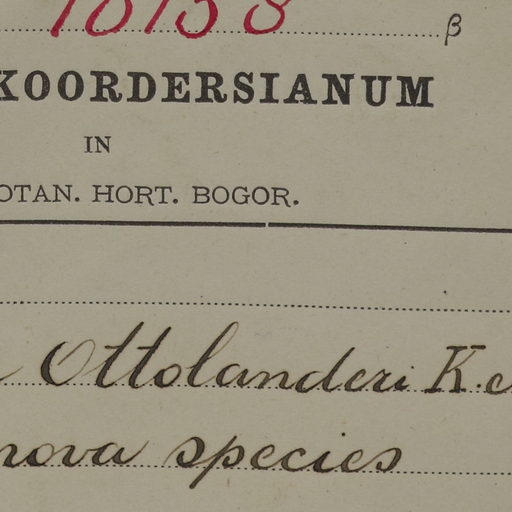 β
KOORDERSIANUM
IN
OTAN. HORT. BOGOR.
Ottolanderi K.
nova species